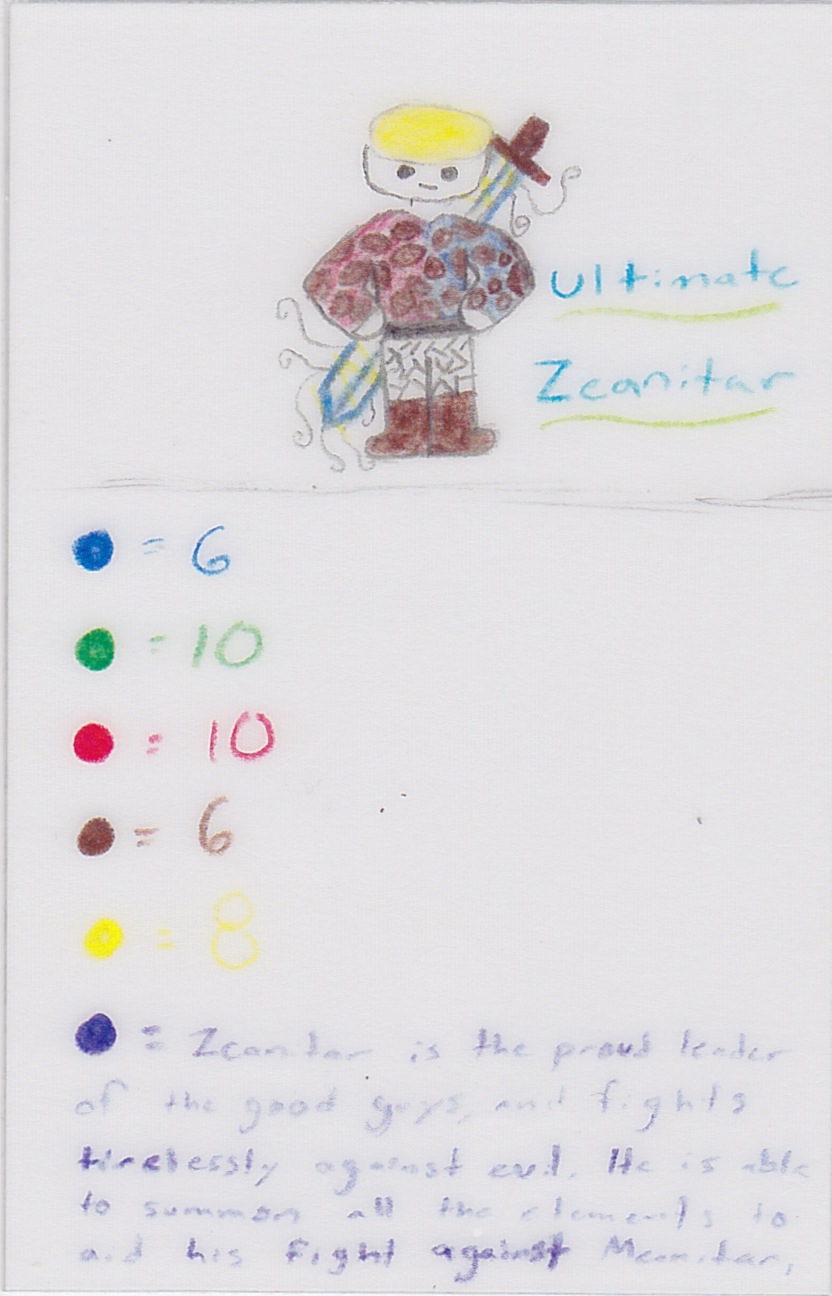 Ultimate
Zeanitar
= 6
= 10
= 10
= 6
= 8
= Zeanitar is the proud leader
of the good guys, and fights
tirelessly against evil. He is able
to summon all the elements to
aid his fight against Meanitar,